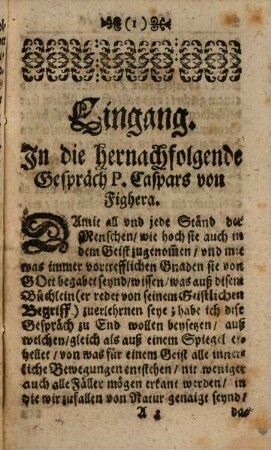 (1)
Eingang.
In die hernachfolgende
Gespräch P. Caspars von
Fighera.
DAmit all vnd jede Ständ der
Menschen / wie hoch sie auch in
dem Geist zugenom̃en / vnd mit
was immer vortrefflichen Gnaden sie von
GOtt begabet seynd / wissen / was auß disem
Büchlein (er redet von seinem Geistlichen
Begriff.) zuerlehrnen seye; habe ich dise
Gespräch zu End wollen beysetzen / auß
welchen / gleich als auß einem Spiegel er-
hellet / von was für einem Geist alle inner-
liche Bewegungen entstehen / nit weniger
auch alle Fäller mögen erkant werden / in
die wir zufallen von Natur genaigt seynd /
A das